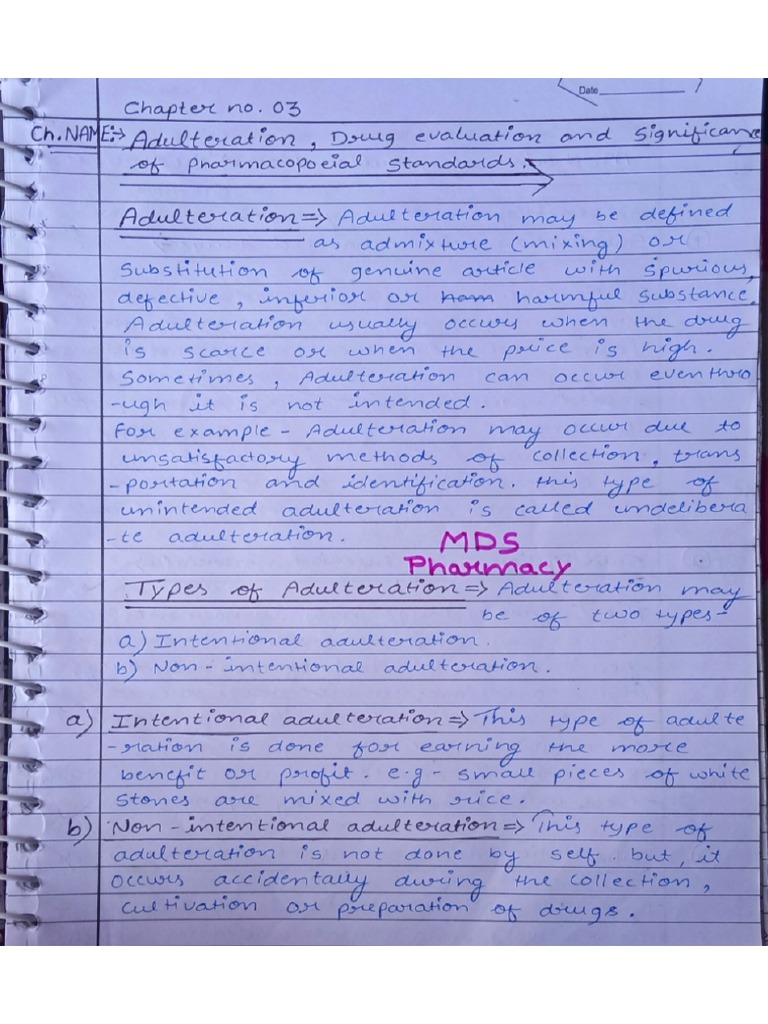 Date
Chapter no. 03
Ch. NAME:-> Adulteration, Drug evaluation and Significance
of pharmacopoeial standards.
Adulteration => Adulteration may be defined
as admixture (mixing) or
Substitution of genuine article with spurious,
defective, inferior or ham harmful substance.
Adulteration usually occurs when the drug
is scarce or when the price is high.
Sometimes, Adulteration can occur eventhro
-ugh it is not intended.
For example - Adulteration may occur due to
unsatisfactory methods of collection, trans
-portation and identification. this type of
unintended adulteration is called undelibera
-te adulteration.
MDS
Pharmacy
Types of Adulteration => Adulteration may
be of two types-
a) Intentional adulteration.
b) Non-intentional adulteration.
a) Intentional adulteration => This type of adulte
-ration is done for earning the more
benefit or profit. e.g - small pieces of white
stones are mixed with rice.
b) Non-intentional adulteration => This type of
adulteration is not done by self. but, it
occurs accidentally during the collection,
cultivation or preparation of drugs.